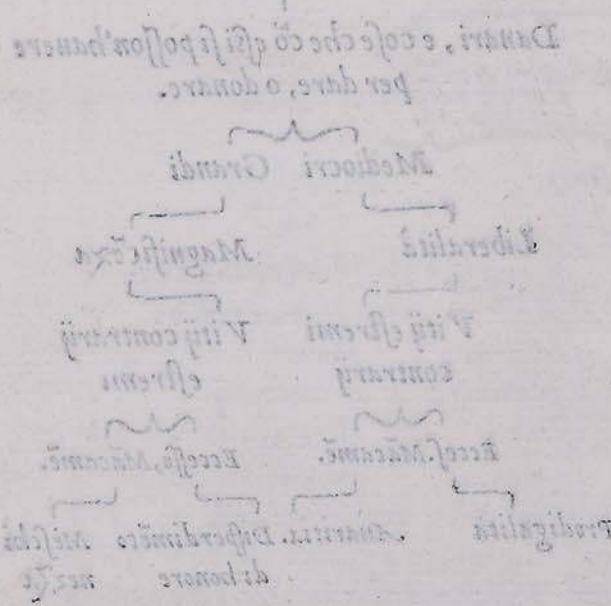 Danari, e coſe che cõ eſſi ſi poſſon'hauere
per dare, o donare.
Mediocri Grandi
Liberalità Magnificẽza
Vitij eſtremi Vitij contrarij
contrarij eſtremi
Ecceſ. Mãcamẽ. Ecceſſo, Mãcamẽ.
Prodigalità Auaritia. Diſperdimẽto
di honore